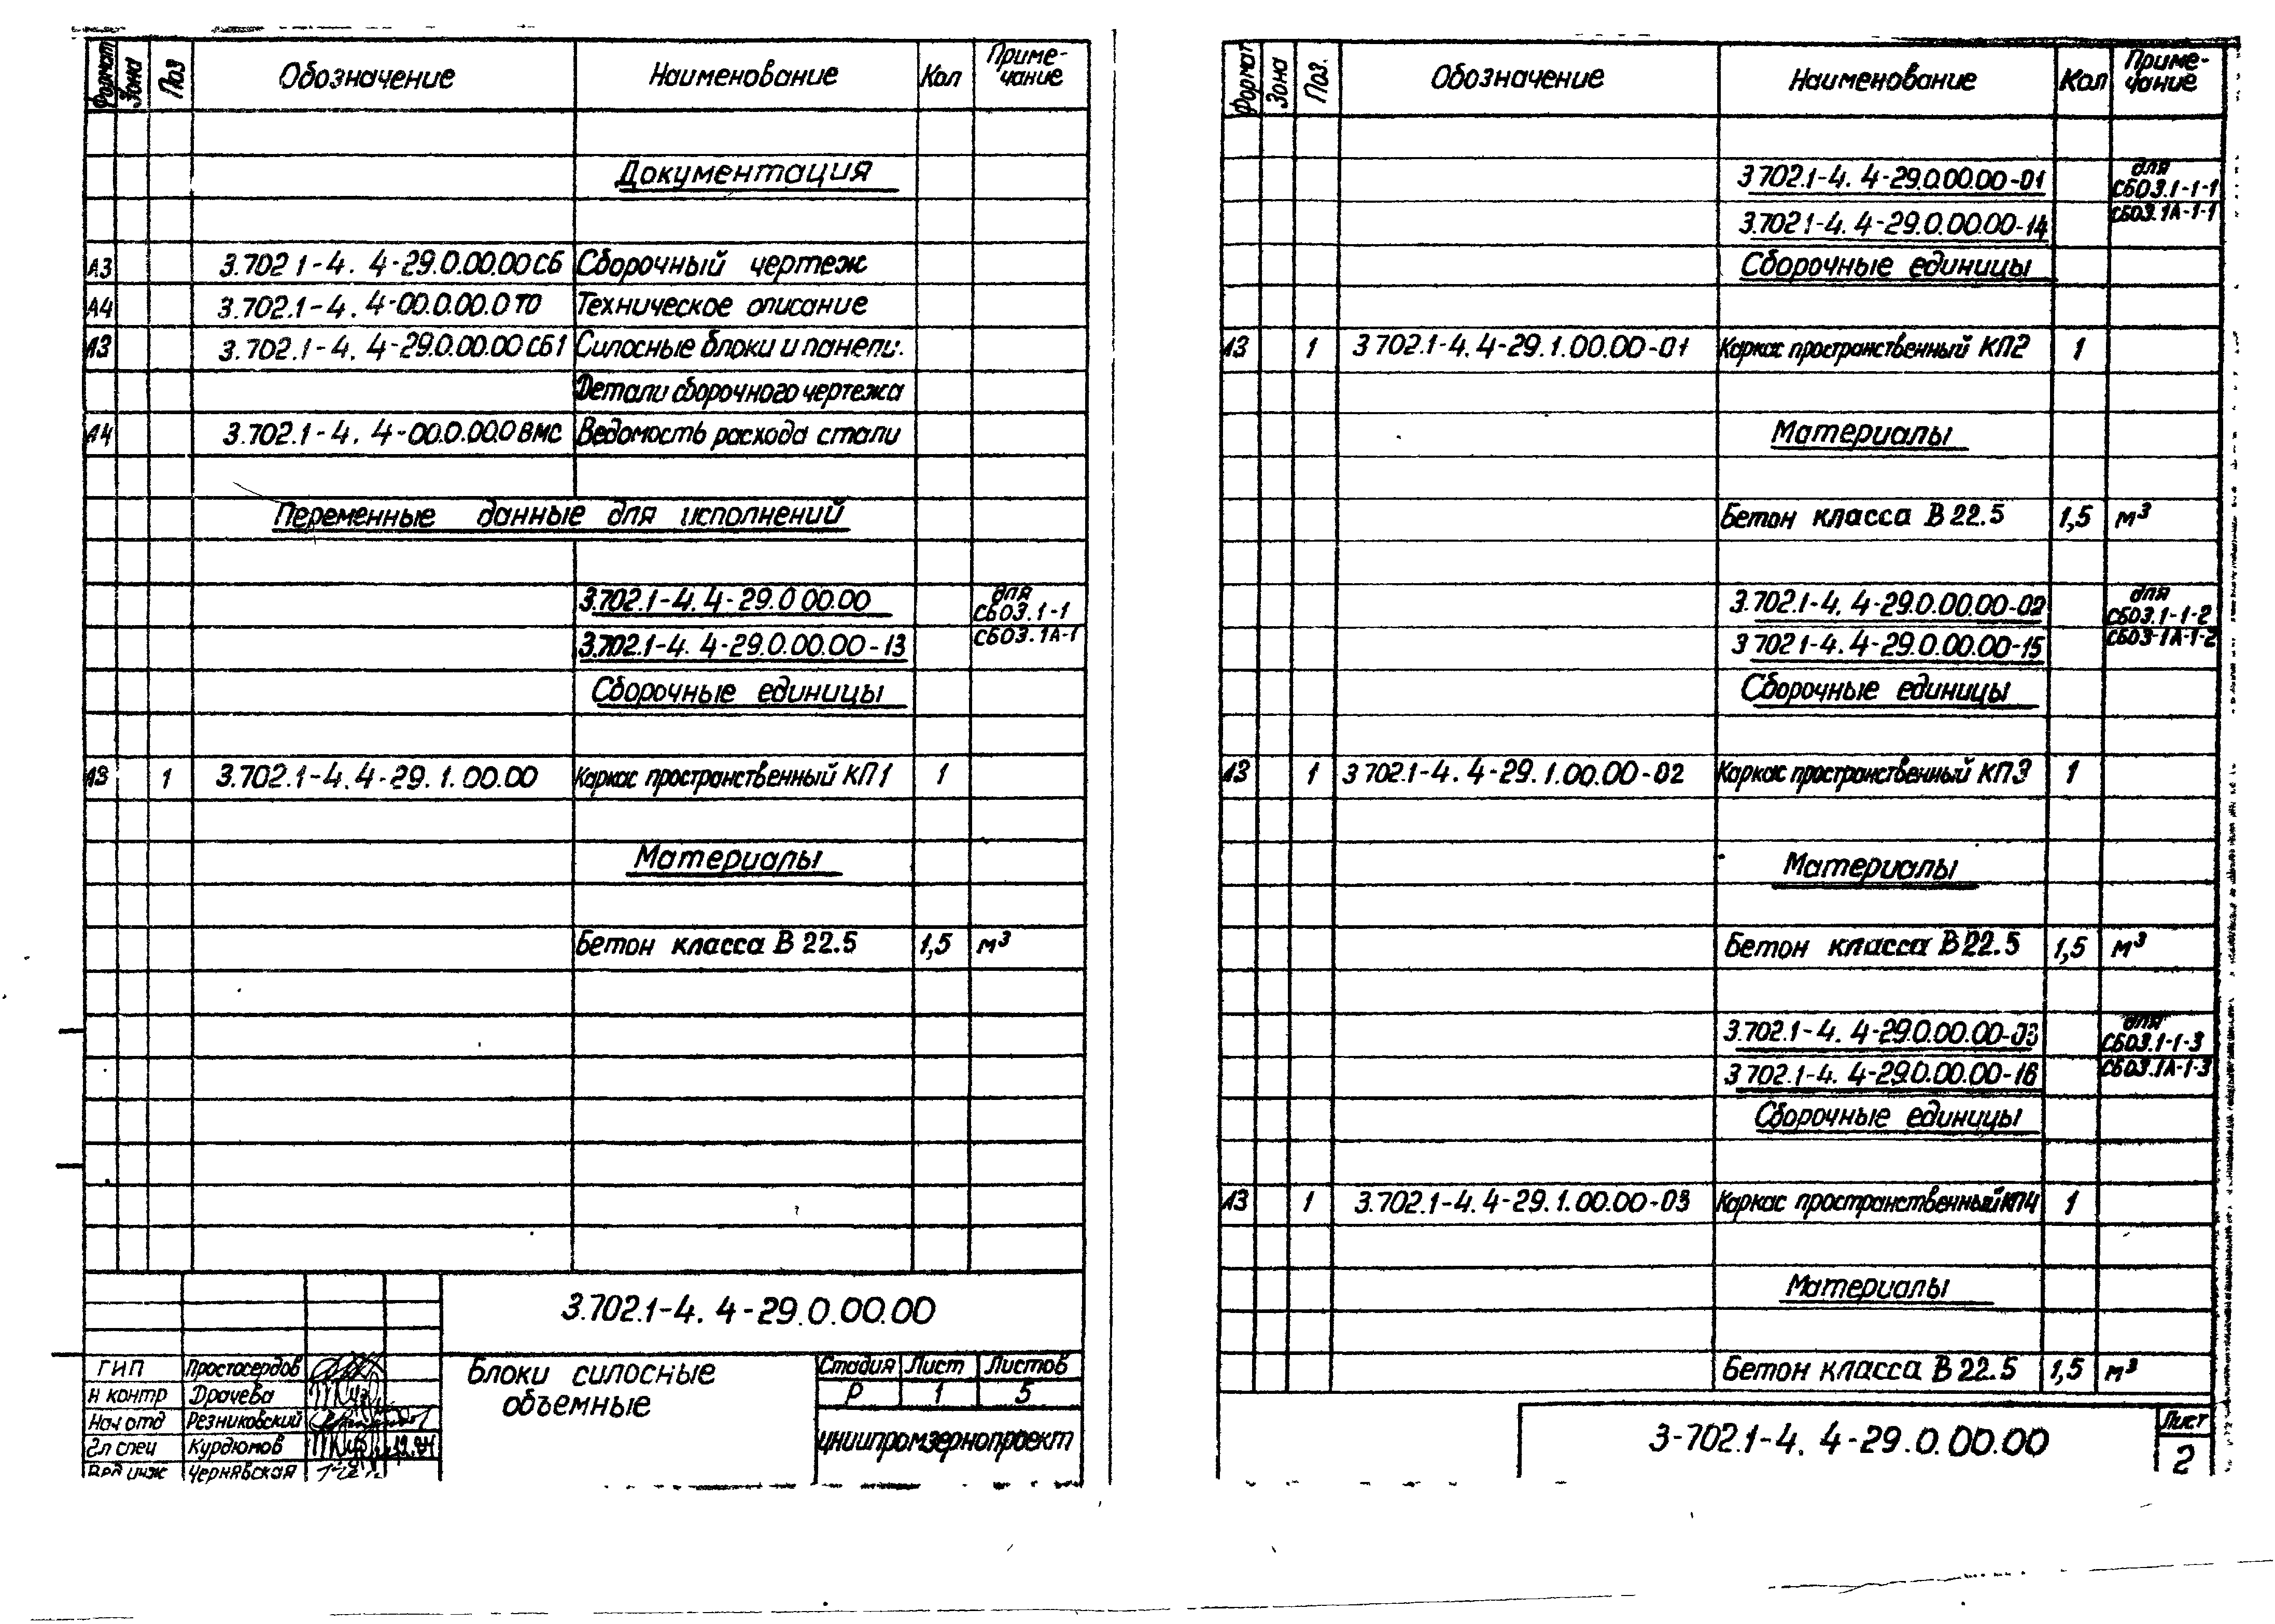 Формат Зона Поз Обозначение Наименование Кол Приме-
чание
Документация
А3 3.702 1-4. 4-29.0.00.00 СБ Сборочный чертеж
А4 3.702.1-4. 4-00.0.00.0 ТО Техническое описание
А3 3.702.1-4. 4-29.0.00.00 СБ1 Силосные блоки и панели.
Детали сборочного чертежа
А4 3.702.1-4. 4-00.0.00.0 ВМС Ведомость расхода стали
Переменные данные для исполнений
3.702.1-4. 4-29.0 00.00 для
СБ03.1-1
3.702.1-4. 4-29.0.00.00-13 СБ03.1А-1
Сборочные единицы
А3 1 3.702.1-4.4-29.1.00.00 Каркас пространственный КП1 1
Материалы
Бетон класса В 22.5 1,5 м³
3.702.1-4. 4-29.0.00.00
ГИП Простосердов
Н контр Драчева
Нач отд Резниковский
Гл спец Курдюмов
Вед инж Чернявская
Блоки силосные
объемные
Стадия Лист Листов
Р 1 5
ЦНИИпромзернопроект
Формат Зона Поз. Обозначение Наименование Кол Приме-
чание
3 702.1-4. 4-29.0.00.00-01 для
СБ03.1-1-1
3.702 1-4. 4-29.0.00.00-14 СБ03.1А-1-1
Сборочные единицы
А3 1 3 702.1-4.4-29.1.00.00-01 Каркас пространственный КП2 1
Материалы
Бетон класса В 22.5 1,5 м³
3.702.1-4. 4-29.0.00.00-02 для
СБ03.1-1-2
3 702 1-4. 4-29.0.00.00-15 СБ03-1А-1-2
Сборочные единицы
А3 1 3 702.1-4.4-29.1.00.00-02 Каркас пространственный КП3 1
Материалы
Бетон класса В 22.5 1,5 м³
3.702.1-4. 4-29.0.00.00-03 для
СБ03.1-1-3
3 702.1-4. 4-29.0.00.00-16 СБ03.1А-1-3
Сборочные единицы
А3 1 3.702.1-4.4-29.1.00.00-03 Каркас пространственный КП4 1
Материалы
Бетон класса В 22.5 1,5 м³
3-702.1-4. 4-29.0.00.00
Лист
2